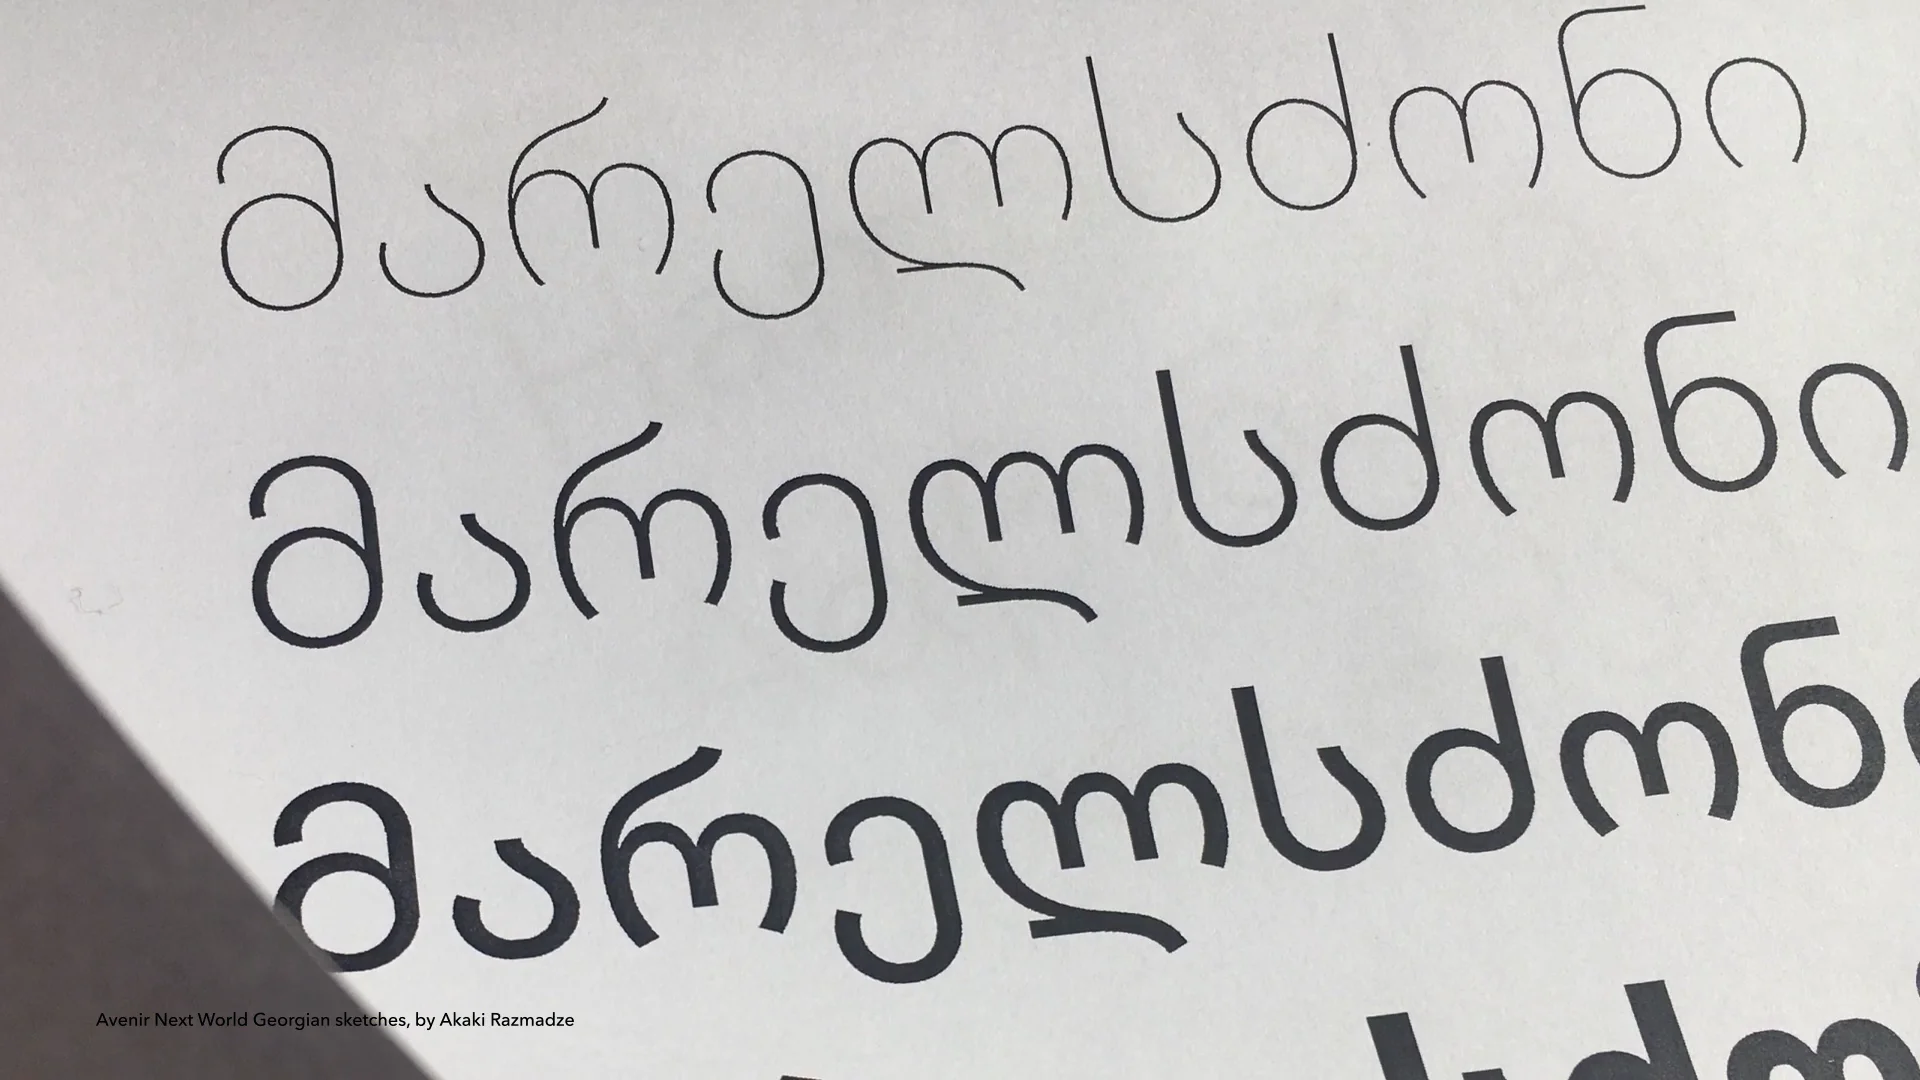 მარელსძონი
მარელსძონი
მარელსძონ
Avenir Next World Georgian sketches, by Akaki Razmadze